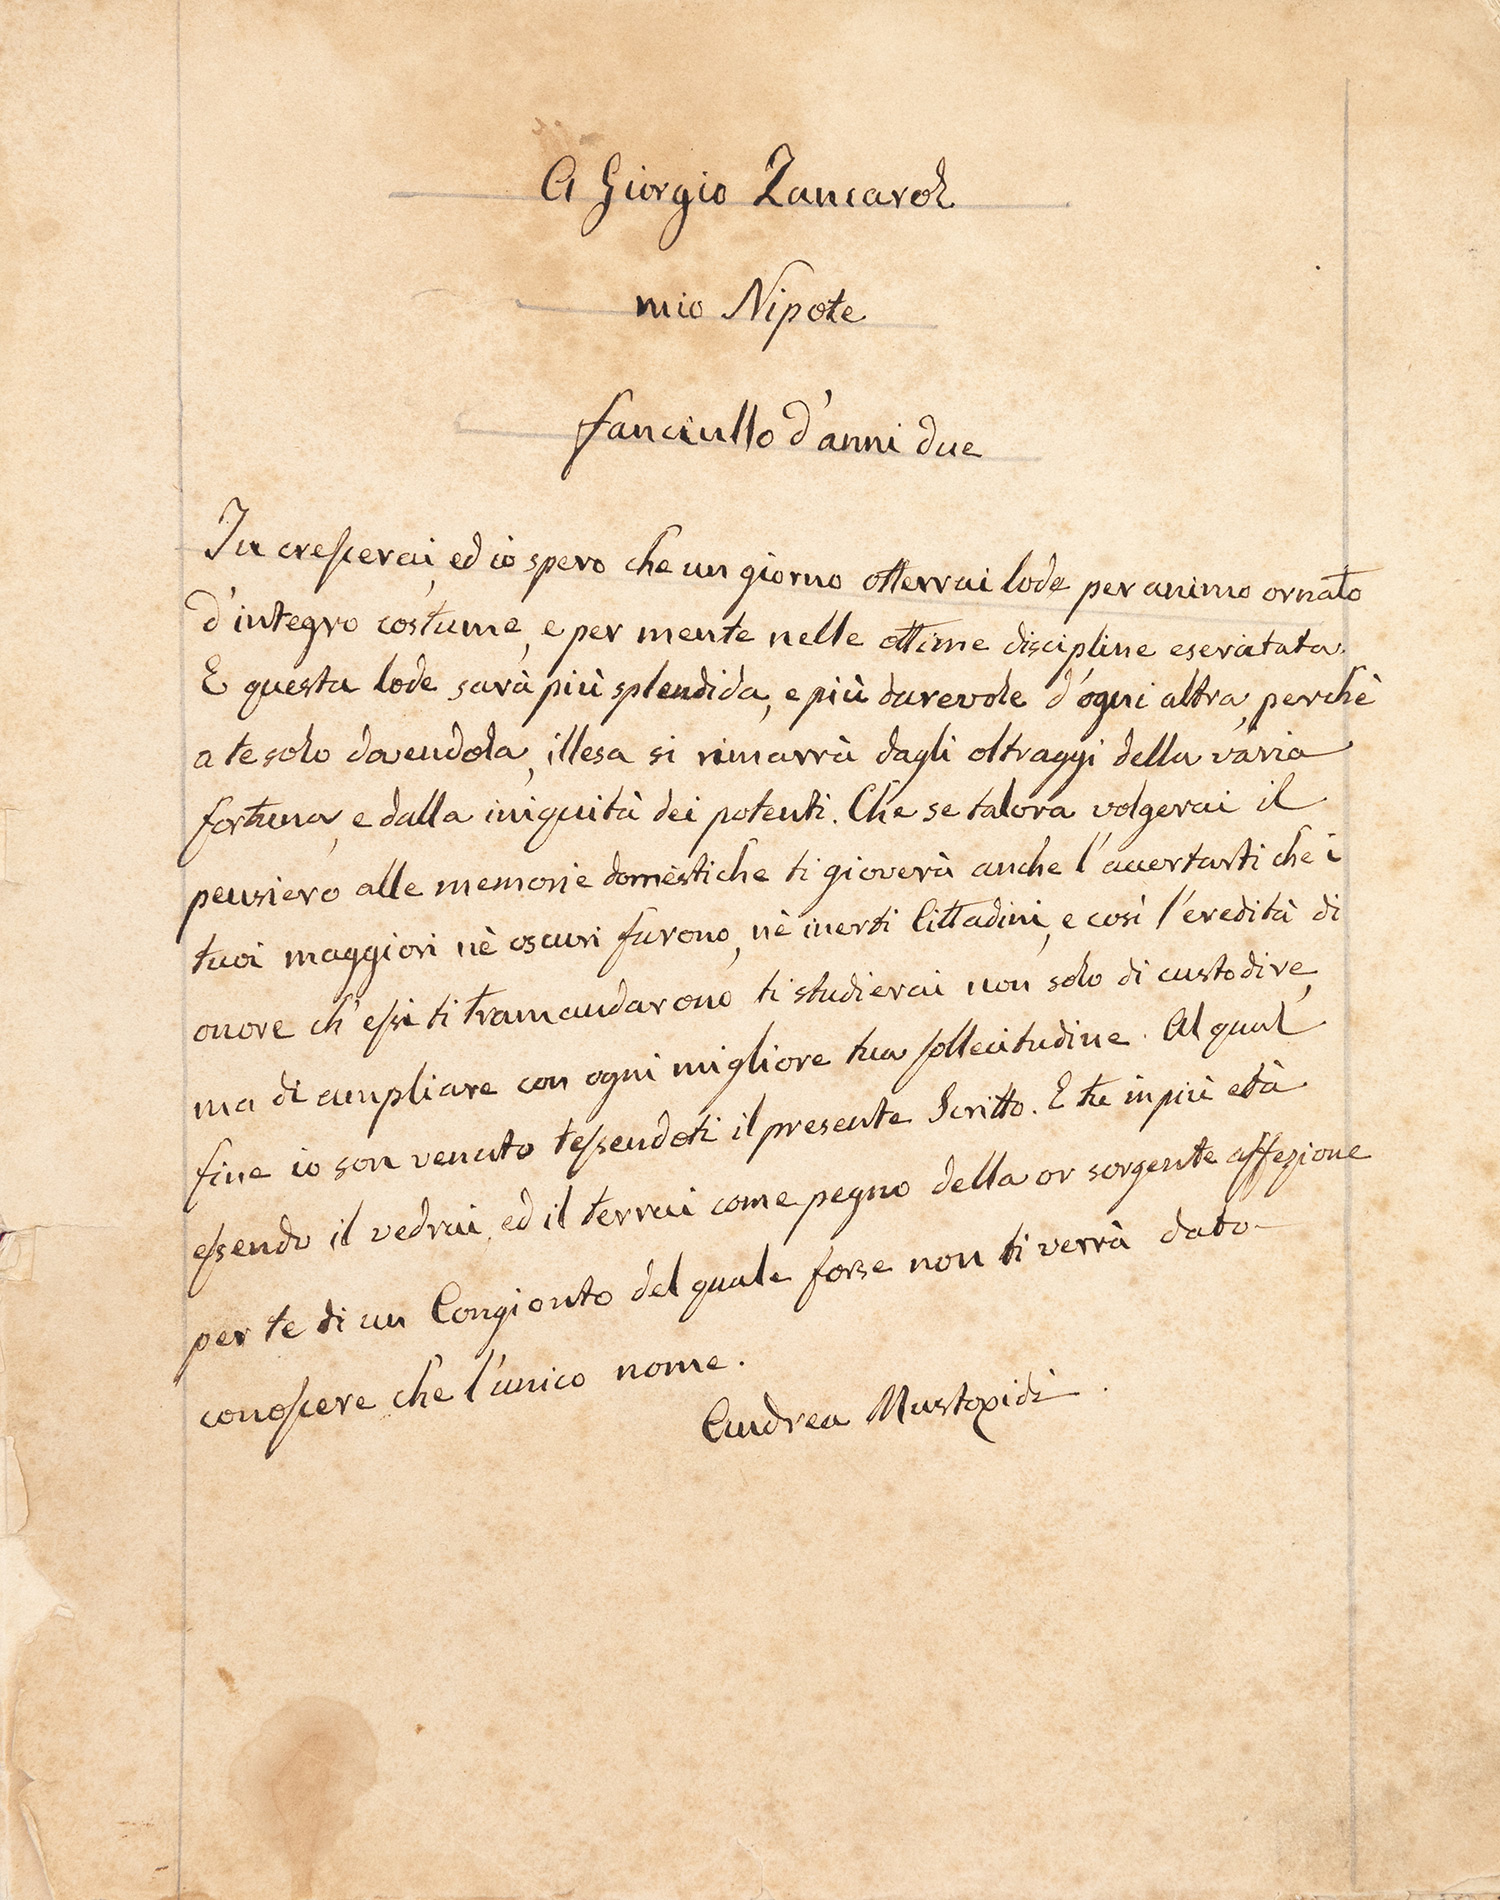 A Giorgio Zancarol
mio Nipote
fanciullo d'anni due
Tu creſcerai, ed io spero che un giorno otterrai lode per animo ornato
d'integro costume, e per mente nelle ottime discipline esercitata.
E questa lode sarà più splendida, e più durevole d'ogni altra, perchè
a te solo dovendola, illesa si rimarrà dagli oltraggi della varia
fortuna, e dalla iniquità dei potenti. Che se talora volgerai il
pensiero alle memorie domestiche ti gioverà anche l'accertarti che i
tuoi maggiori nè oscuri furono, nè inerti Cittadini, e così l'eredità di
onore ch'eſsi ti tramandarono ti studierai non solo di custodire,
ma di ampliare con ogni migliore tua ſollecitudine. Al qual
fine io son venuto teſsendoti il presente Scritto. E tu in più età
eſsendo il vedrai, ed il terrai come pegno della or sorgente affezione
per te di un Congionto del quale forse non ti verrà dato
conoſcere che l'unico nome.
Andrea Mustoxidi.